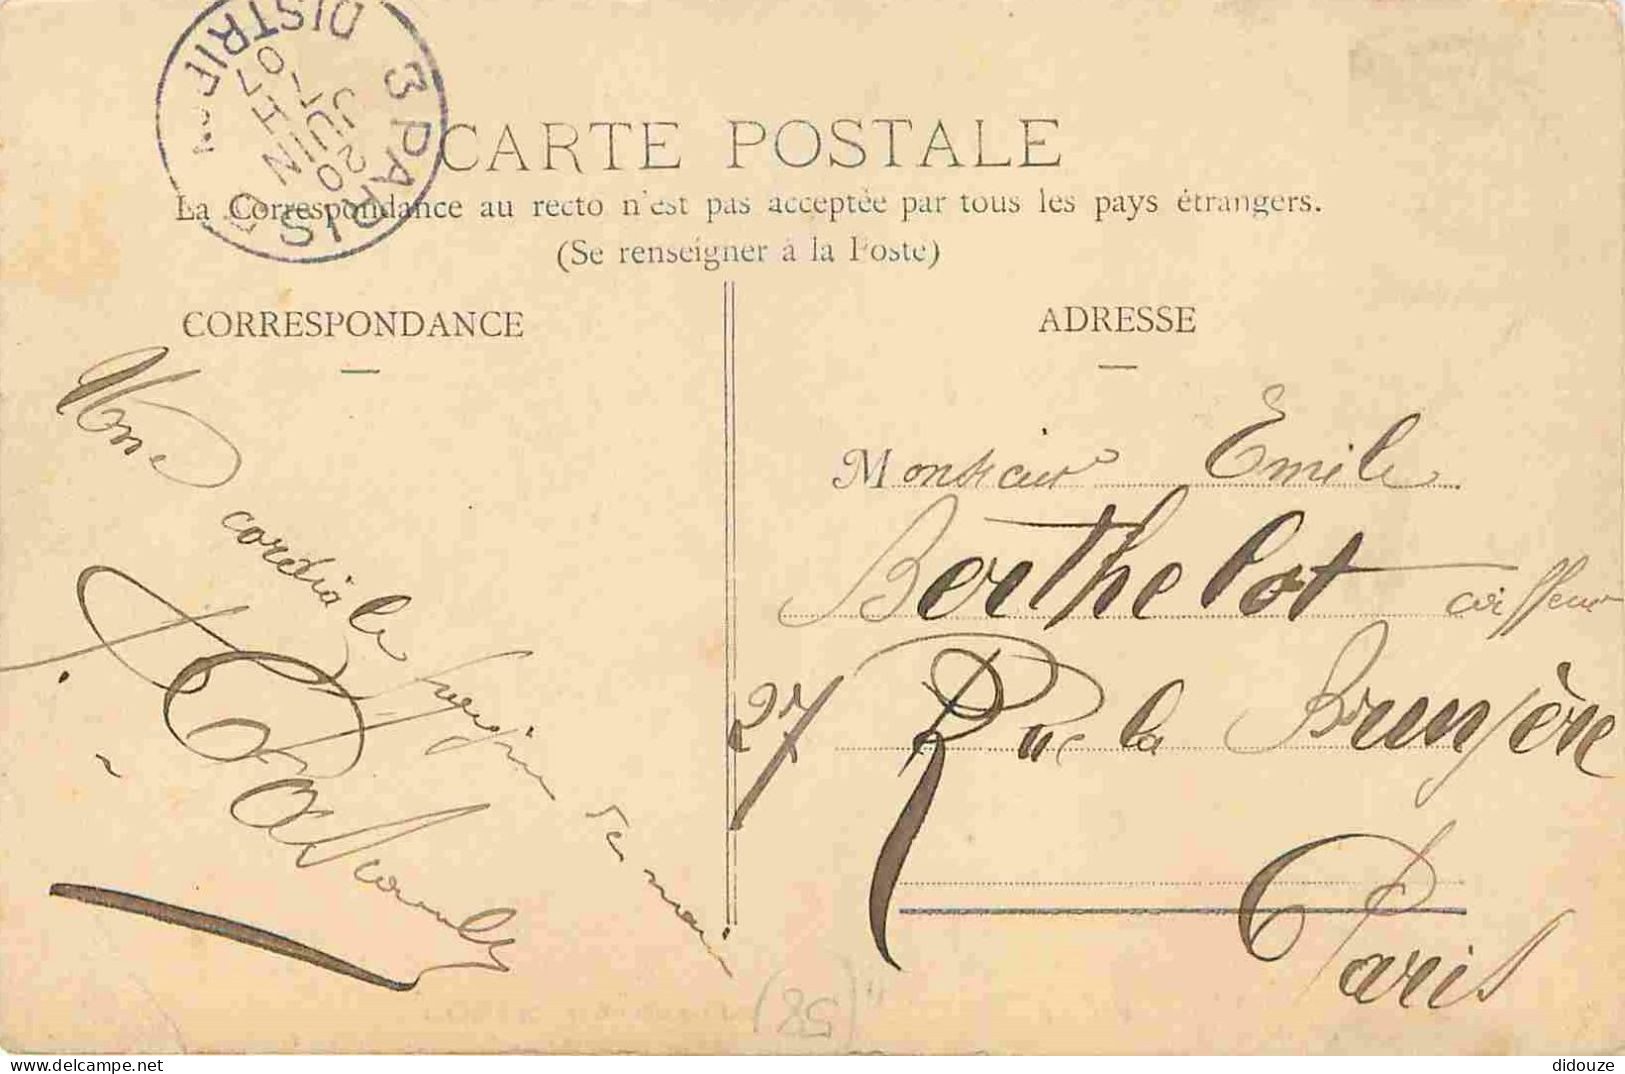 3 PARIS 3
DISTRIB
7 H
20 JUIN
07
CARTE POSTALE
La Correspondance au recto n'est pas acceptée par tous les pays étrangers.
(Se renseigner à la Poste)
CORRESPONDANCE
Une
cordiale
de main
ADRESSE
Monsieur Emile
Berthelot coiffeur
27 Rue la Bruyère
Paris
(58)
didouze